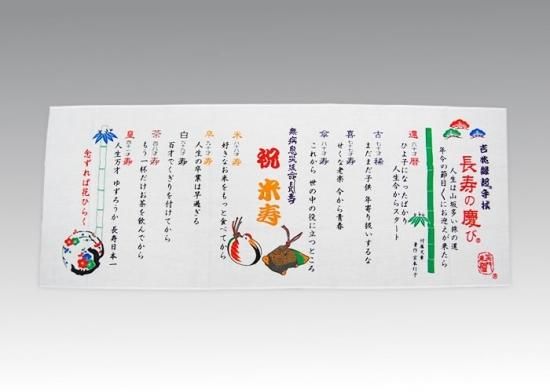 長寿の慶び
人生は山坂多い旅の道
年令の節目にお迎えが来たら
還暦
六十才
ひよ子になったばかり
人生今からスタート
古稀
七十才
まだまだ子供 年寄り扱いするな
喜寿
七十七才
せくな老楽 今から青春
傘寿
八十才
これから 世の中の役に立つところ
祝 米寿
米寿
八十八才
好きなお米をもっと食べてから
卒寿
九十才
人生の卒業は早過ぎる
白寿
九十九才
百才でくぎりを付けてから
茶寿
百八才
もう一杯だけお茶を飲んでから
皇寿
人生万才 ゆずろうか 長寿日本一
念ずれば花ひらく